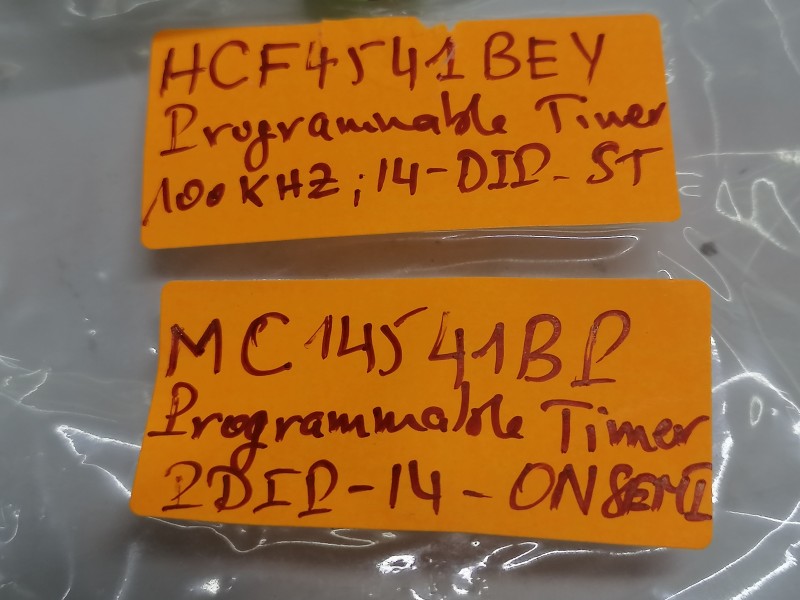 HCF4541BEY
Programmable Timer
100KHZ; 14-DIP-ST
MC14541BP
Programmable Timer
PDIP-14-ONSEMI